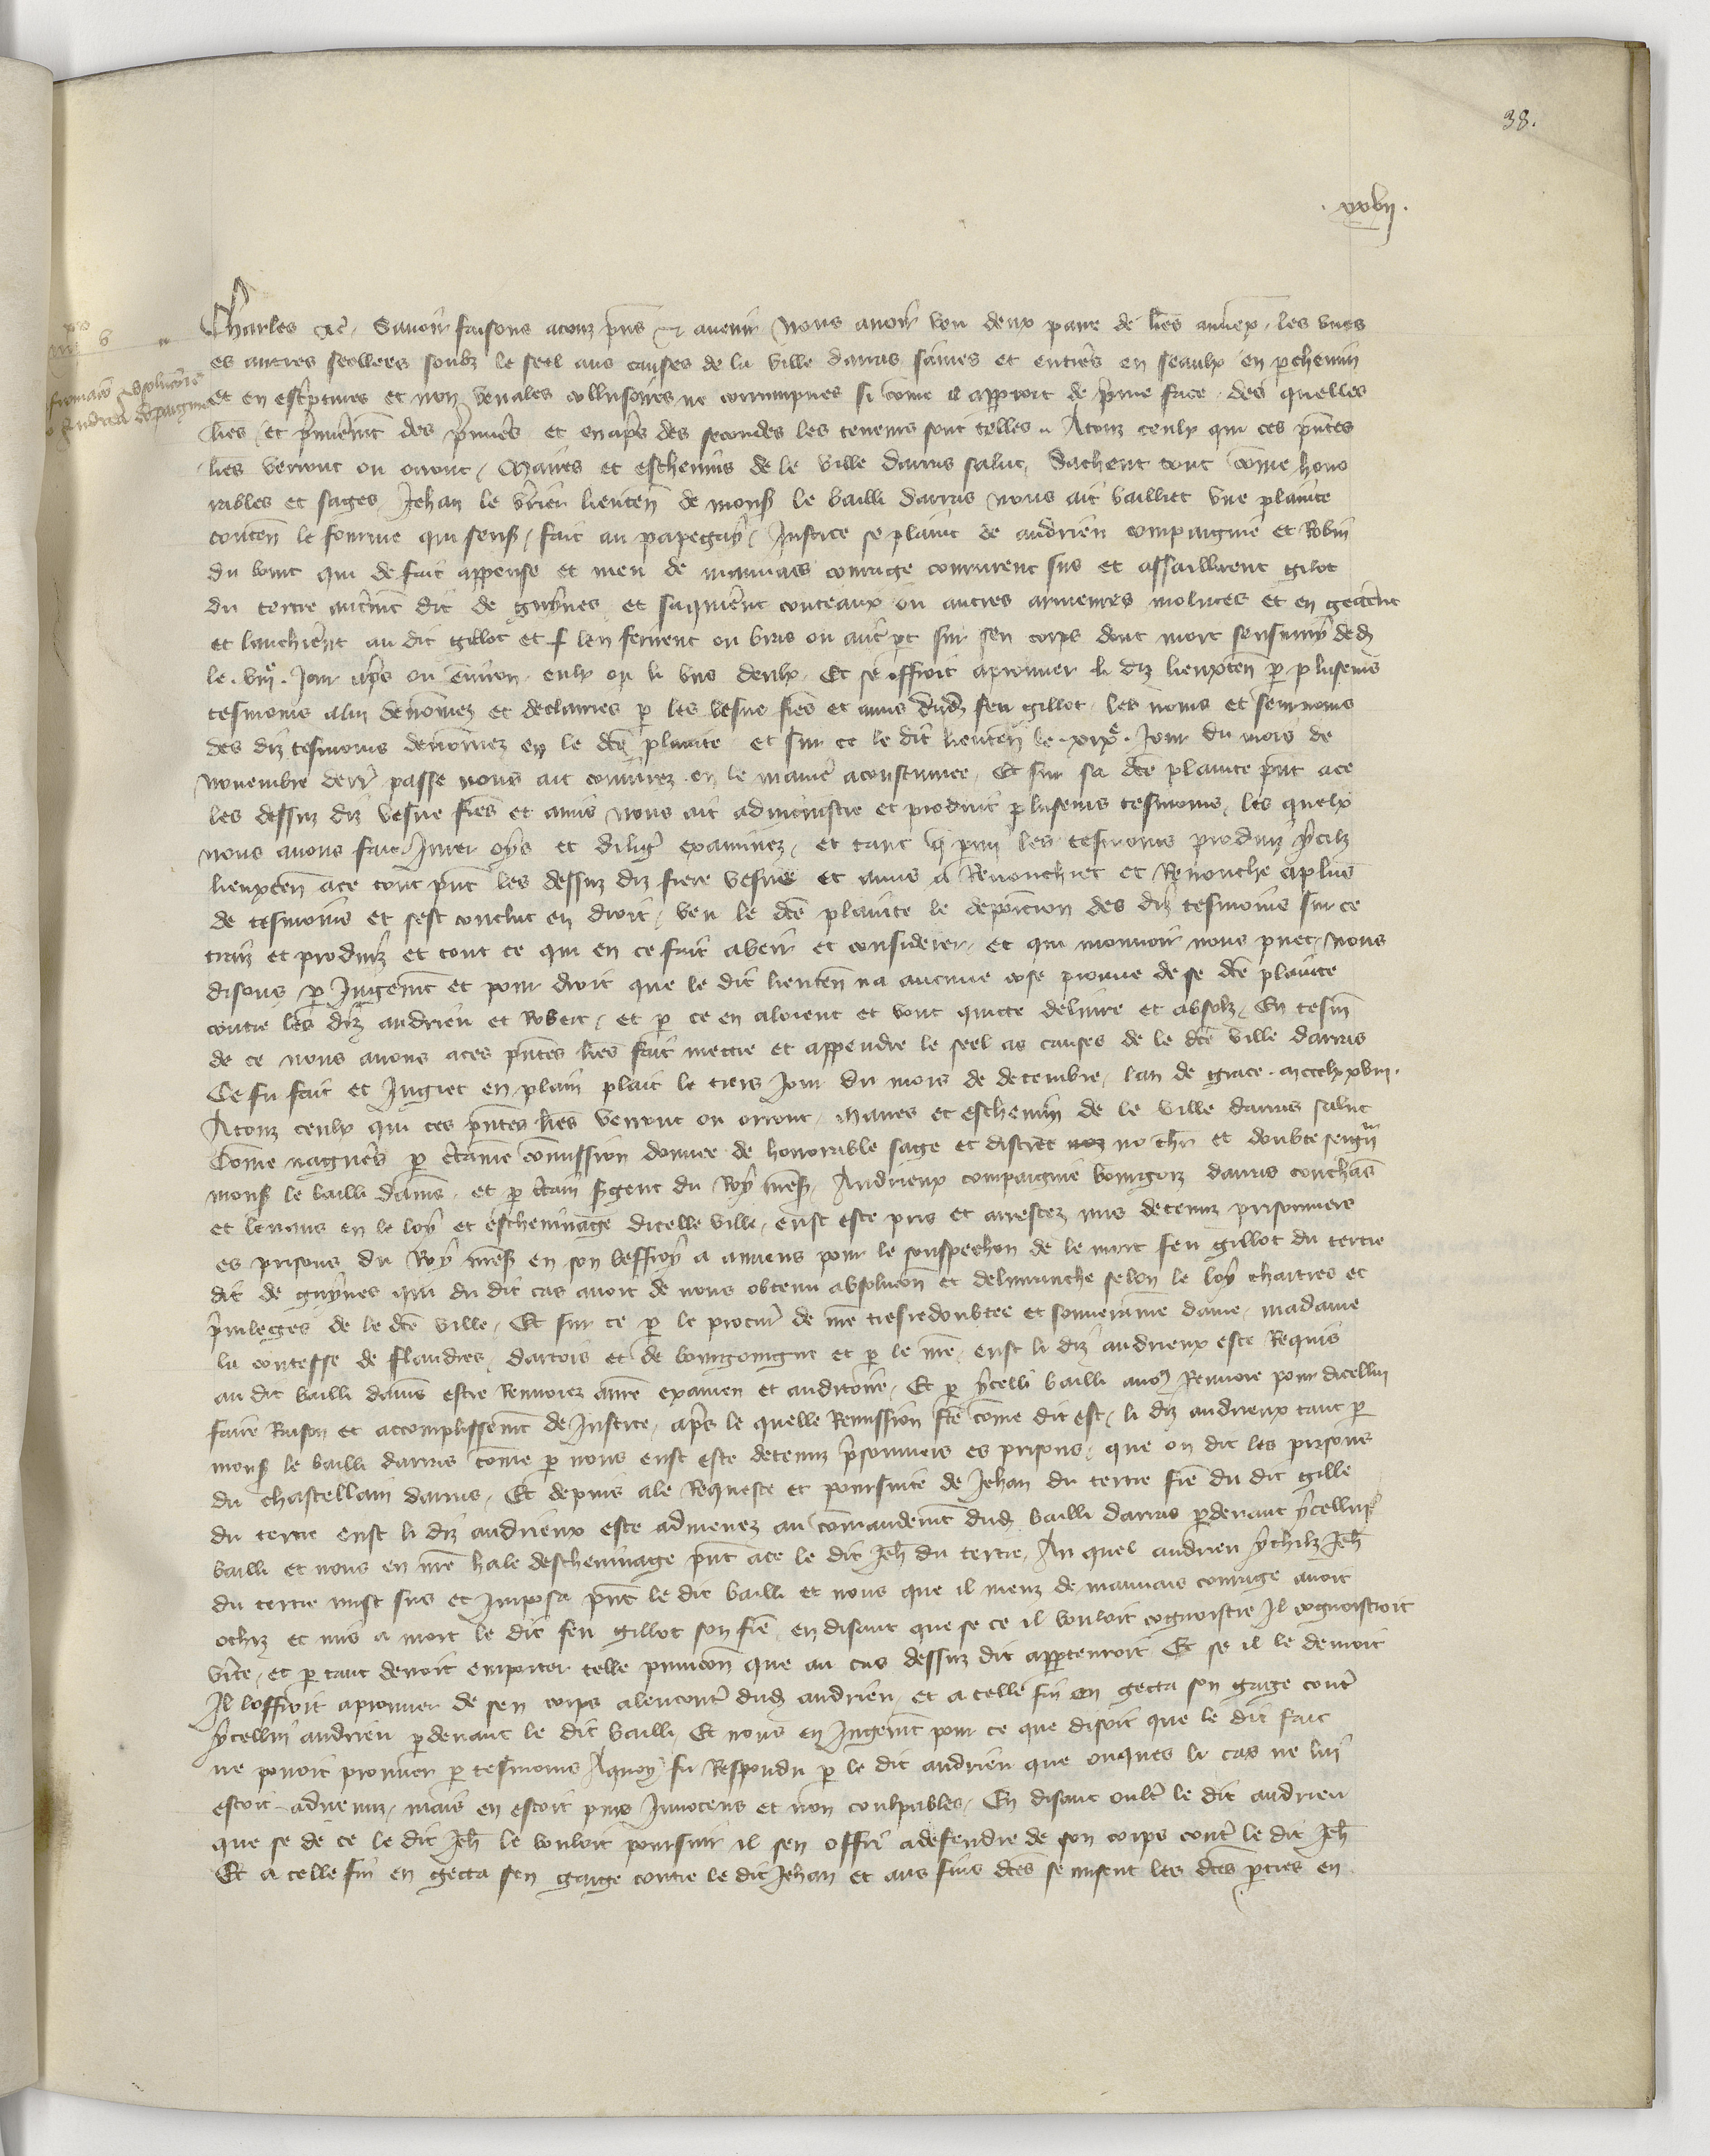 38.
.xxvij.
Charles etc. Savoir faisons a touz pn̄s et avenir Nous avoir veu deux paire de lr̄es annexˢ, les unes
es autres seellees soubz le seel aus causes de la ville darras saines et entieres en seaulx en pchemin
et en escptures et non venales collusoires ne corrumpues si cōme il apparoit de pm̄e face. des quelles
lr̄es et pmierem̄t des pmieres et enap̄s des secondes les teneurs sont telles. A touz ceulx qui ces pn̄tes
lr̄es verront ou orront, Maires et eschevins de le ville darras salut, Sachent tout cōme hono
rables et sages Jehan le lieuten̄ de mons̄ le bailli darras nous ait bailliet une plainte
conten̄ le fourme qui sens̄, fait au papegay, Justice se plaint de andrieu compaignie et Robin
du bont qui de fait appense et meu de mauvais courage coururent sus et assaillirent gilot
du tertre autrem̄t dit de guynes et saquierēt couteaux ou autres armeures molues et en getterēt
et lanchierēt au dit gillot et len ferirent ou bras ou aut̄ pt sur sen corps dont mort sensuiuy ded
le .viijᵉ. jour ap̄s ou environ, eulx ou li uns deulx, Et se offroit a prouver li diz lieuxten̄ p pluseurs
tesmoins a lui denōmez et declaires p les vesve freres et amis dud feu gillot, les noms et seurnoms
des diz tesmoins denōmez en le dc̄e plainte et sur ce le dit lieuten̄ le .xixᵉ. jour du mois de
novembre derr̄ passe nous ait coniurez en le maniē acoustumee, Et sur sa dc̄e plainte pn̄t a ce
les dessuz diz vesve freres et amis nous ait administre et produit pluseurs tesmoins, les quelx
nous avons fait jurer oys et dilig examinez, et tant q pmy les tesmoins produiz ycilz
lieuxten̄ a ce tout pn̄t les dessuz diz frere vesve et amis a Renonchiet et Renonche a plus
de tesmoins et sest conclut en droit, veu le dc̄e plainte le deposicion des diz tesmoins sur ce
traiz et produiz et tout ce qui en ce fait a veir et considerer, et qui mouvoir nous puet, nous
disons p jugem̄t et pour droit que le dit lieuten̄ na aucune cose prouve de se dc̄e plainte
contre les diz andrieu et Robert, et p ce en aloient et vont quitte delivre et absolz, En tesm̄
de ce nous avons a ces pn̄tes lr̄es fait mettre et appendre le seel as causes de le dc̄e ville darras
Ce fu fait et jugiet en plain plait le tiers jour du mois de decembre, lan de grace .mccclxxviij.
A touz ceulx qui ces pn̄tes lr̄es verront ou orront, Maires et eschevin de le ville darras salut
Cōme nagueres p certaine cōmission donnee de honorable sage et discrete no ch̄r et doubte seign̄
mons̄ le bailli damīs, et p certain sgent du Roy nr̄es̄, Andrieux compaignie bourgoiz darras couchās
et levans en le loy et eschevinage dicelle ville, eust este pris et arrestez mis detenuz prisonniers
es prisons du Roy nr̄es̄ en son beffroy a amiens pour le souspechon de le mort feu gillot du tertre
dit de guynes qui du dit cas avoit de nous obtenu absolucōn et delivranche selon le loy chartres et
pvileges de le dc̄e ville, Et sur ce p le procur̄ de nr̄e tresredoubtee et souveraine dame, madame
la contesse de flandres, dartois et de bourgoingne et p le nr̄e, eust li diz andrieux este Requis
au dit bailli damīs estre Renvoiez a nr̄e examen et auditoire, Et p ycelli bailli a nous Renvoie pour dicellui
faire Raison et accomplissem̄t de justice, ap̄s le quelle Remission fc̄e cōme dit est, li diz andrieux tant p
mons̄ le bailli darras cōme p nous eust este detenuz psonniers es prisons, que on dit les prisons
du chastellain darras, Et depuis a le Requeste et poursuite de Jehan du tertre frere du dit gille
du tertre eust li diz andrieux este admenez au cōmandem̄t dud bailli darras pdevant ycellui
bailli et nous en nr̄e hale deschevinage pn̄t a ce le dit Jeh̄ du tertre, Au quel andrieu ychilz Jeh̄
du tertre mist sus et jmposa pn̄t le dit bailli et nous que il meuz de mauvais courage avoit
ochiz et mis a mort le dit feu gillot son frere, en disant que se ce il vouloit cognoistre il cognoistroit
verite, et p tant devoit emporter telle punicōn que au cas dessuz dit apptenroit Et se il le devoit
Il loffroit a prouver de sen corps alencontre dud andrieu, et a celle fin en getta son gaige contr̄
ycellui andrieu pdevant le dit bailli, Et nous en jugem̄t pour ce que disoit que le dit fait
ne povoit prouver p tesmoins Aquoy fu Respondu p le dit andrieu que onques li cas ne lui
estoit advenuz, mais en estoit purs jnnocens et non coulpables, En disant oultr̄ le dit andrieu
que se de ce le dit Jeh̄ le vouloit poursuir il sen offri a defendre de son corps contr̄ le dit Jeh̄
Et a celle fin en getta sen gaige contre le dit Jehan et aus fins dc̄es se misent les dc̄es pties en